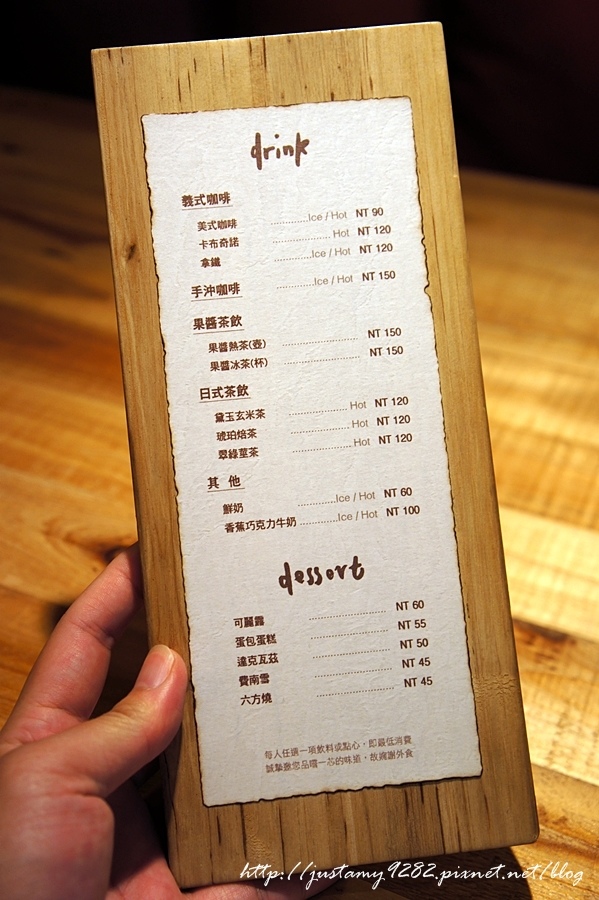 drink
義式咖啡
美式咖啡 ............Ice / Hot NT 90
卡布奇諾 .................. Hot NT 120
拿鐵 ............Ice / Hot NT 120
手沖咖啡 ............Ice / Hot NT 150
果醬茶飲
果醬熱茶(壺) ........................ NT 150
果醬冰茶(杯) ........................ NT 150
日式茶飲
黛玉玄米茶 .................. Hot NT 120
琥珀焙茶 .................. Hot NT 120
翠綠莖茶 .................. Hot NT 120
其 他
鮮奶 ............Ice / Hot NT 60
香蕉巧克力牛奶 ............Ice / Hot NT 100
dessert
可麗露 ........................ NT 60
蛋包蛋糕 ........................ NT 55
達克瓦茲 ........................ NT 50
費南雪 ........................ NT 45
六方燒 ........................ NT 45
每人任選一項飲料或點心，即最低消費
誠摯邀您品嚐一芯的味道，故婉謝外食
http://justamy9282.pixnet.net/blog